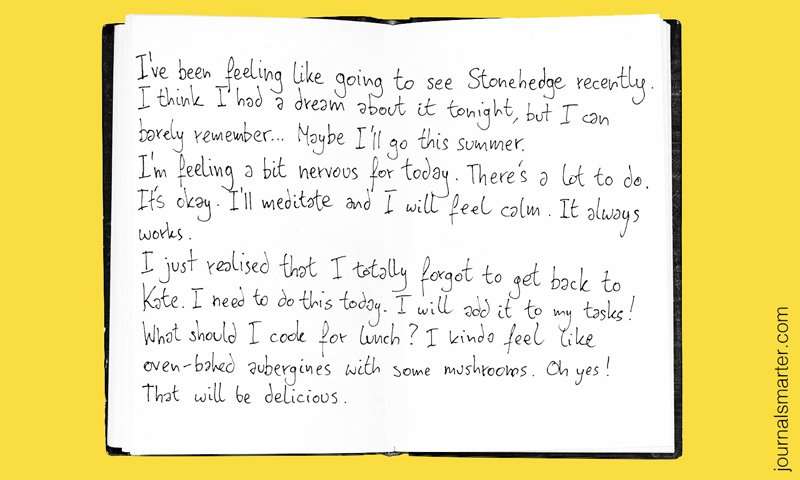 I've been feeling like going to see Stonehedge recently.
I think I had a dream about it tonight, but I can
barely remember... Maybe I'll go this summer.
I'm feeling a bit nervous for today. There's a lot to do.
It's okay. I'll meditate and I will feel calm. It always
works.
I just realised that I totally forgot to get back to
Kate. I need to do this today. I will add it to my tasks!
What should I cook for lunch? I kinda feel like
oven-baked aubergines with some mushrooms. Oh yes!
That will be delicious.
journalsmarter.com